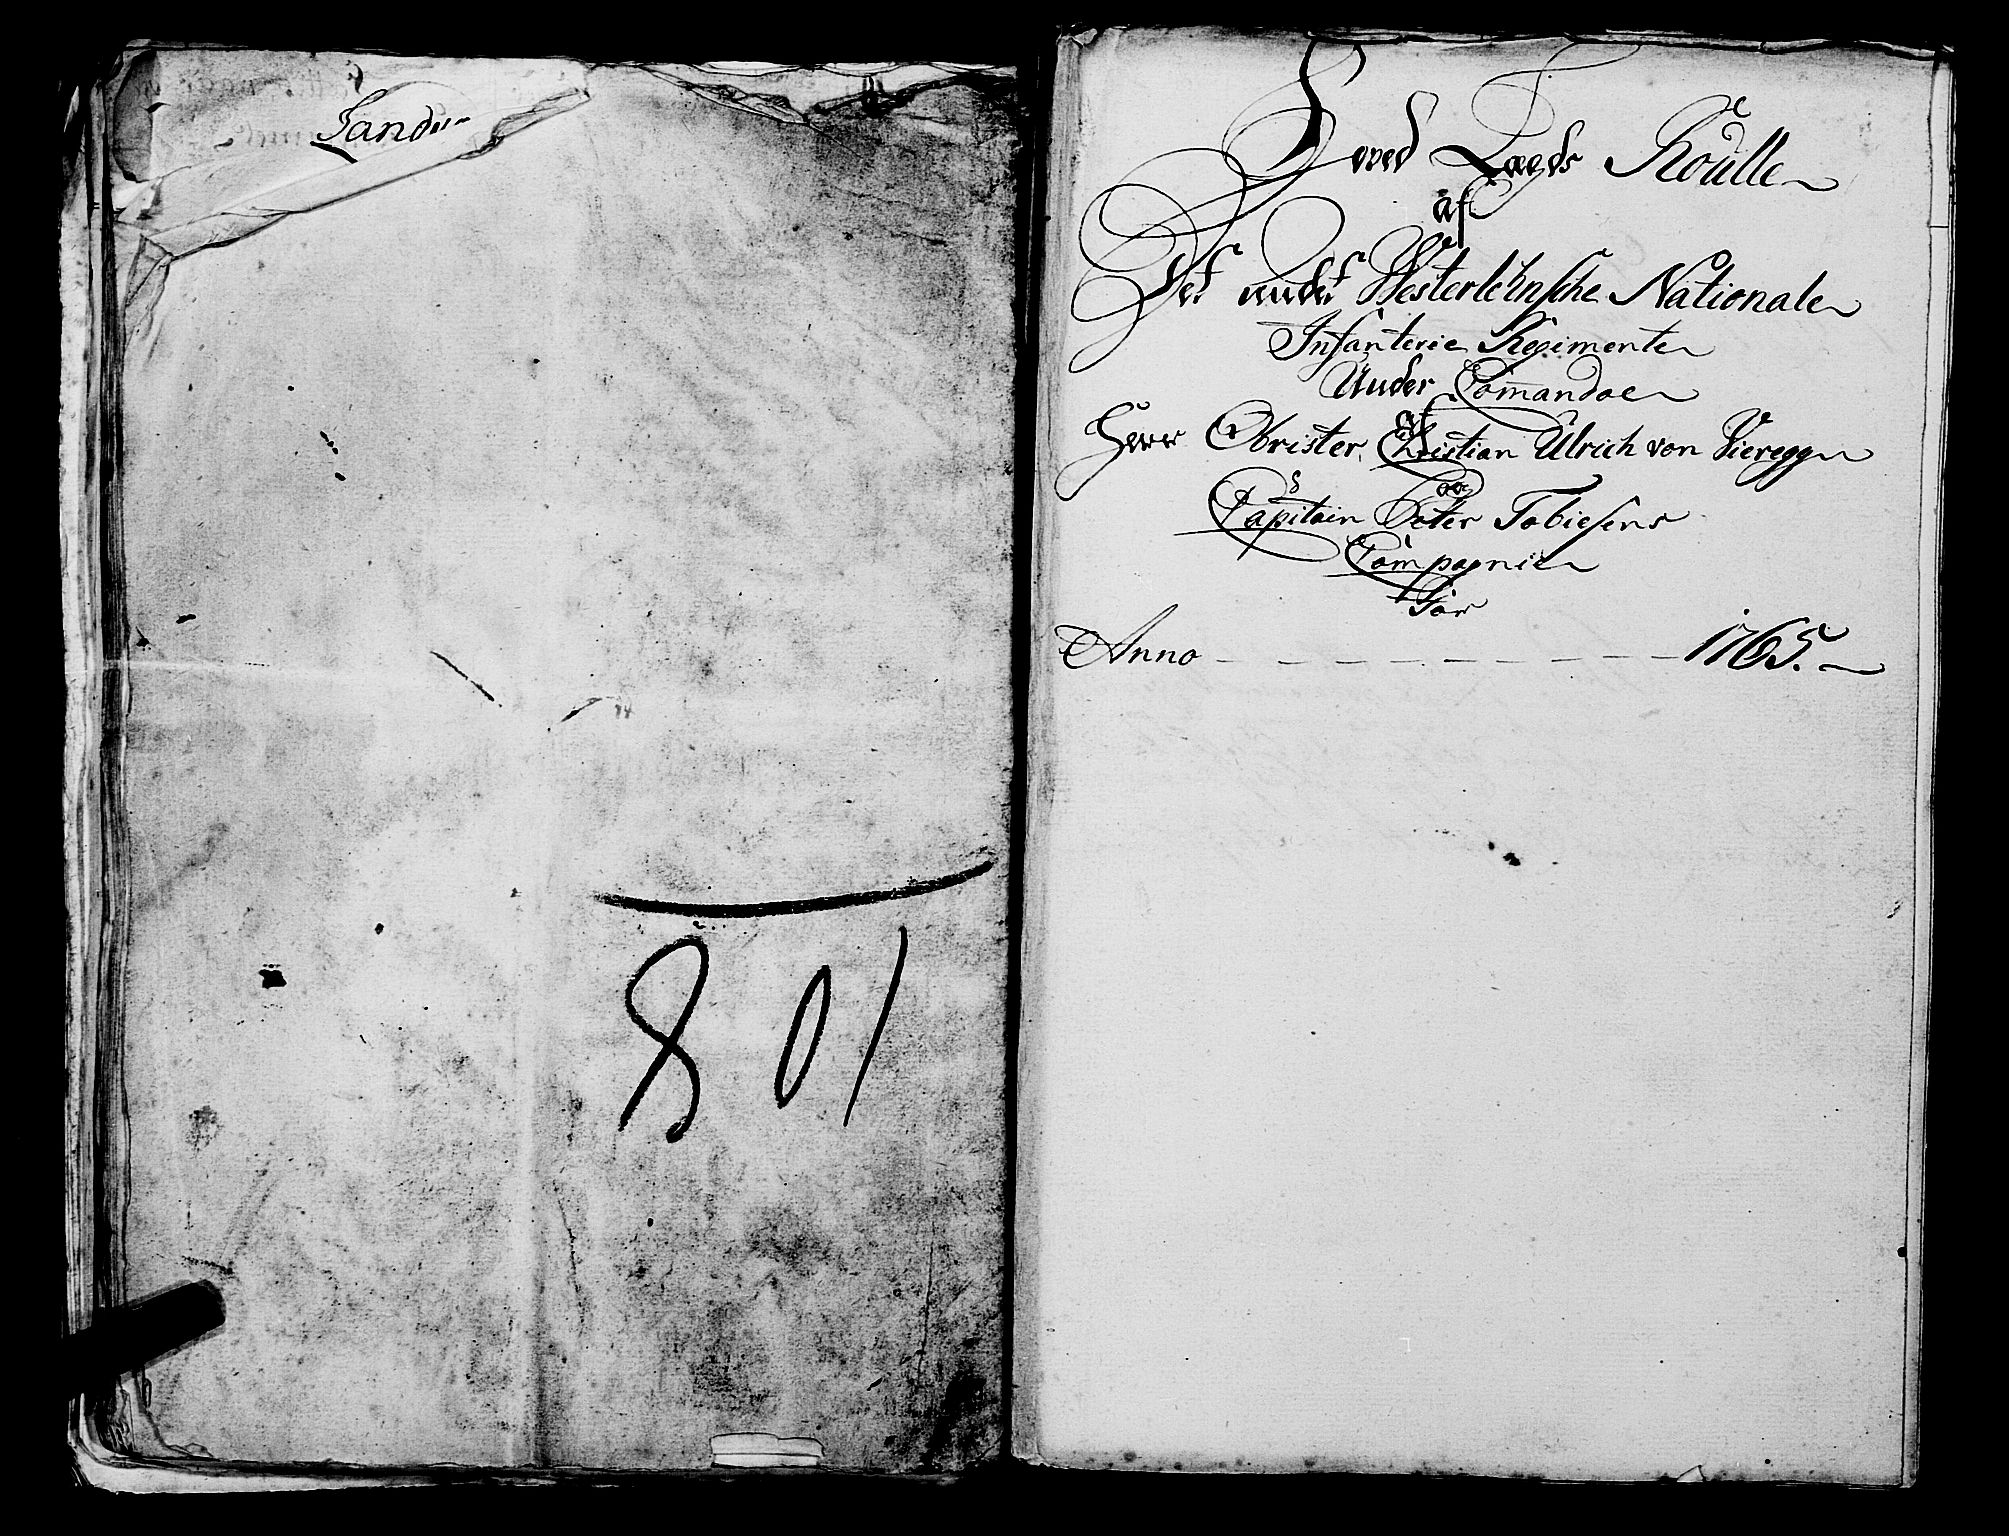 Sand
801
Hoved Lægds Roulle
af
Det andet Westerlehnsche Nationale
Infanterie Regimente
Under Comandoe
af
Herr Obrister Christian Ulrich von Vieregg
og
Capitain Peter Tobiesens
Compagnie
For
Anno - - - - - - - - 1765.